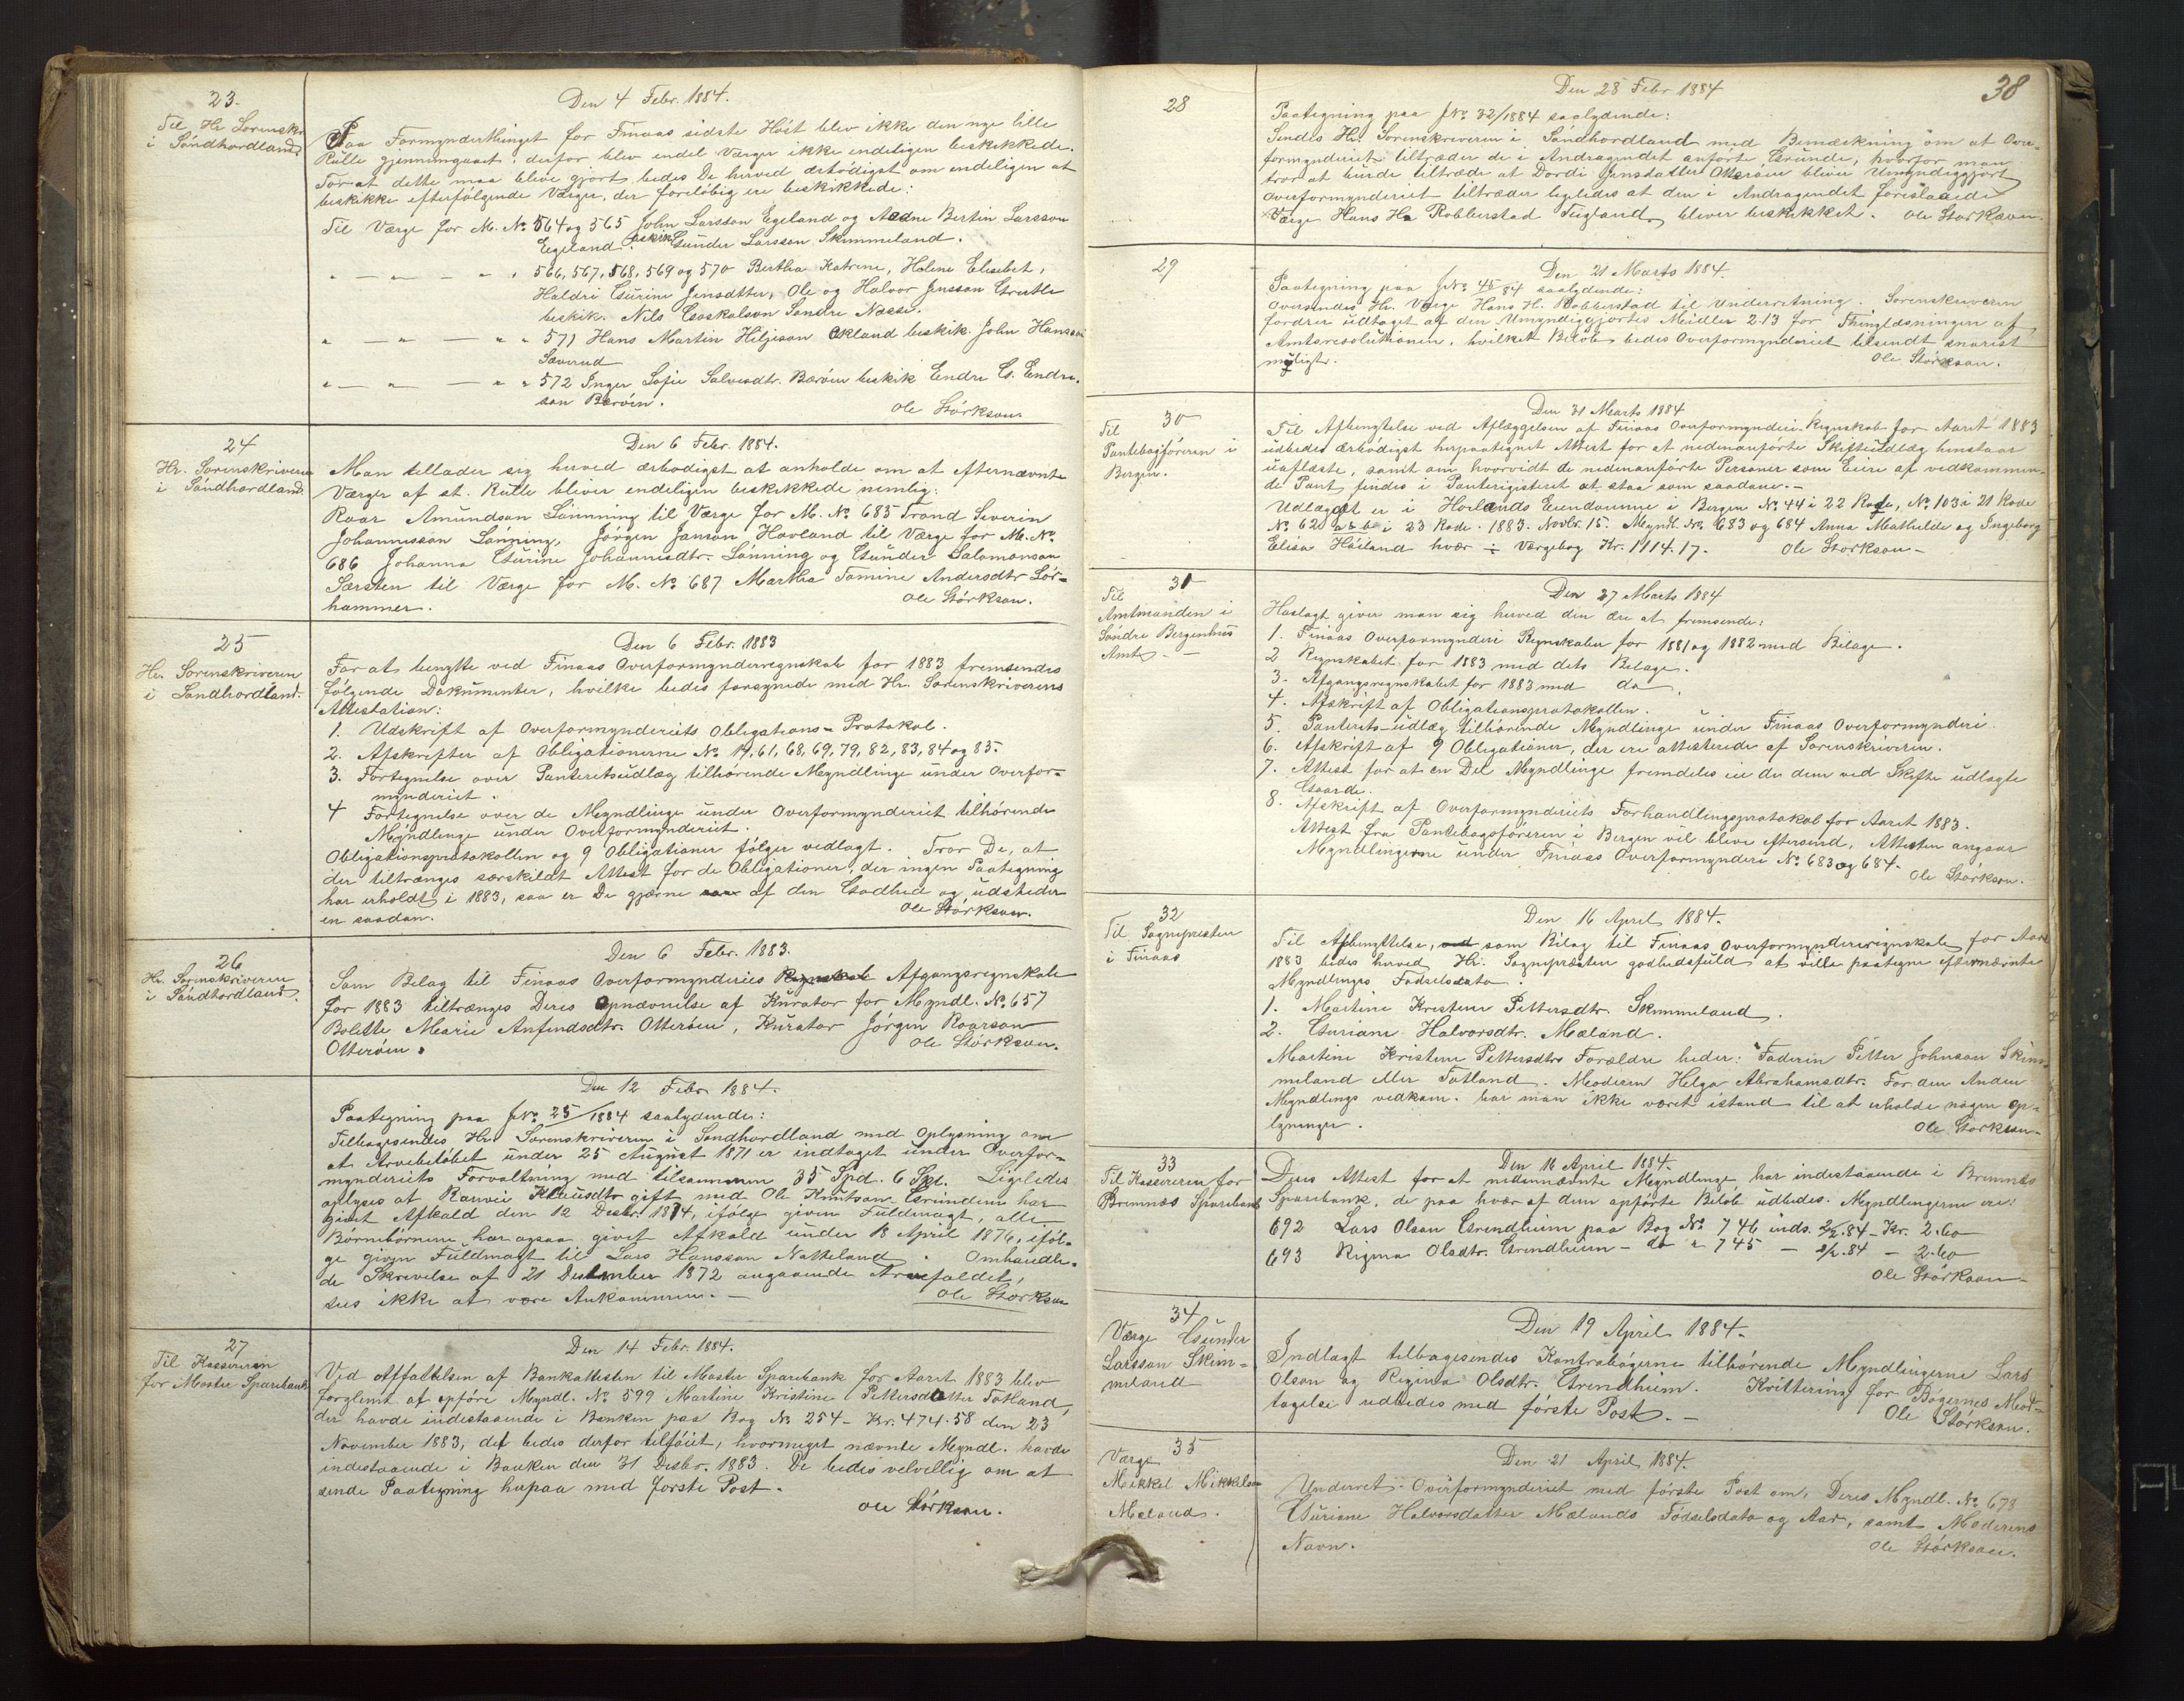 23.
Til Hr. Sorenskr.
i Söndhordland.
Den 4 Febr. 1884.
Paa Formynderthinget for Finaas sidste Höst blev ikke den nye lille
Rulle gjennemgaaet, derfor blev endel Værger ikke endeligen beskikkede.
For at dette maa blive gjort bedes De herved ærbödigst om endeligen at
beskikke efterfölgende Værger, der foreløbig ere beskikkede:
Til Værge for M. No 564 og 565 John Larsson Egeland og Aadne Bertin Larsson
Egeland beskik. Gunder Larsson Skimmeland.
" — " — " " 566, 567, 568, 569 og 570 Bertha Katrine, Helene Elisebet,
Haldri Gurine Jensdtter, Ole og Halvor Jensson
beskik. Nils Sondre Næsse.
" — " — " " 571 Hans Martin Okland beskik. John Hansson
Sæverud
" — " — " " 572 Inger Sofie Salvesdtr. Børöen beskik Endre G. Endre-
son Børöen.
Ole Störkson.
24
Hr. Sorenskriveren
i Söndhordland.
Den 6 Febr. 1884.
Man tillader sig herved ærbodigst at anholde om at efternævnte
Værger af st. Rulle bliver endeligen beskikkede nemlig:
Roar Amundson Lönning til Værge for M. No 685 Trond Severin
Johannesson Lönning, Jörgen Janson Hovland til Værge for M. No
686 Johanna Gurine Johannesdtr. Lönning og Gunder Salomonson
Sørsten til Værge for M. No 687 Martha Tomine Andersdtr Lör-
hammer.
Ole Störkson.
25
Hr. Sorenskriveren
i Söndhordland.
Den 6 Febr. 1883
For at benytte ved Finaas Overformynderregnskab for 1883 fremsendes
følgende Dokumenter, hvilke bedes forsynede med Hr. Sorenskriverens
Attestation:
1. Udskrift af Overformynderiets Obligations-Protokol.
2. Afskrifter af Obligationerne No 19, 61, 68, 69, 79, 82, 83, 84 og 85.
3. Fortegnelse over Panteretsudlæg tilhörende Myndlinge under Overfor-
mynderiet.
4 Fortegnelse over de Myndlinge under Overformynderiet tilhörende
Myndlenge under Overformynderiet.
Obligationsprotokollen og 9 Obligationer fölger vedlagt. Tror De, at
der tiltrænges særskildt Attest for de Obligationer, der ingen Paategning
har erholdt i 1883, saa er De gjerne af den Godhed og udsteder
en saadan.
Ole Störkson.
26
Hr. Sorenskriveren
i Söndhordland.
Den 6 Febr. 1883.
Som Belag til Finaas Overformynderies Regnskab Afgangsregnskab
for 1883 tiltrænges Deres Opnævnelse af Kurator for Myndl. No 657
Bolette Marie Anfindsdtr. Otteröen, Kurator Jörgen Roarson
Otteröen.
Ole Störkson.
Den 12 Febr 1884.
Paategning paa JNo 25/1884 saalydende:
Tilbagesendes Hr. Sorenskriveren i Söndhordland med Oplysning om
at Arvebelöbet under 25 August 1871 er indtaget under Overfor-
mynderiets Forvaltning med tilsammen 35 Spd. 6 Sk. Ligeledes
oplyses at Ranvei Klausdtr gift med Ole Knutson Grinden har
givet Afkald den 12 Decbr. 1874, ifölge given Fuldmagt, alle
Börnebörnene har ogsaa givet Afkald under 18 April 1876, iföl-
ge given Fuldmagt til Lars Hansson Natteland. Omhandle-
de Skrivelse af 21 December 1872 angaaende Arvefaldet,
sees ikke at være Ankommen. —
Ole Störkson
27
Til Kassereren
for Moster Sparebank
Den 14 Febr. 1884.
Ved Affattelsen af Bankattesten til Moster Sparebank for Aaret 1883 blev
forglemt at opföre Myndl. No 599 Martine Kristine Pettersdatter Totland,
der havde indestaaende i Banken paa Bog No 254 - Kr. 474.58 den 23
November 1883, det bedes derfor tilföiet, hvormeget nævnte Myndl. havde
indestaaende i Banken den 31 Decbr. 1883. De bedes velvillig om at
sende Paategning herpaa med förste Post.
Ole Störkson.
38
28
Den 28 Febr 1884
Paategning paa JNo 32/1884 saalydende:
Sendes Hr. Sorenskriveren i Söndhordland med Bemærkning om at Over-
formynderiet tiltræder de i Andragendet anförte Grunde, hvorfor man
tror at burde tiltræde at Dordi Jensdatter Otteröen bliver Umyndiggjort
Overformynderiet tiltræder ligeledes at den i Andragendet foreslaaede
Værge Hans H. Robberstad Tegland, bliver beskikket.
Ole Störkson.
29
Den 21 Marts 1884.
Paategning paa JNo 45/84 saalydende:
Oversendes Hr. Værge Hans H. Robberstad til Underretning. Sorenskriveren
fordrer udtaget af den Umyndiggjortes Midler 2.13 for Thinglæsningen af
Amtsresolutionen, hvilket Belöb bedes Overformynderiet tilsendt snarest
muligt.
Ole Störkson.
30
Til
Pantebogföreren i
Bergen.
Den 31 Marts 1884
Til Afbenyttelse ved Aflæggelsen af Finaas Overformynderi Regnskab for Aaret 1883
udbedes ærbödigst herpaategnet Attest for at nedenanförte Skifteudlæg henstaar
uaflæste, samt om hvorvidt de nedenanförte Personer som Eiere af vedkommen-
de Pant findes i Panteregisteret at staa som saadane. —
Udlægget er i Horlands Eiendomme i Bergen No 44 i 22 Rode, No 103 i 21 Rode
No 62 a & b i 23 Rode. 1883. Novbr. 15. Myndl. No 683 og 684 Anna Mathilde og Ingeborg
Elisa Høiland hver i Værgebog Kr. 1114.17.
Ole Störkson —
31
Til
Amtmanden i
Söndre Bergenhus
Amt. —
Den 27 Marts 1884
Hoslagt giver man sig herved den ære at fremsende:
1. Finaas Overformynderi Regnskaber for 1881 og 1882 med Bilage.
2 Regnskabet for 1883 med dets Bilage.
3. Afgangsregnskabet for 1883 med do.
4. Afskrift af Obligationsprotokollen.
5. Panterets-udlæg tilhörende Myndlinge under Finaas Overformynderi
6. Afskrift af 9 Obligationer, der ere attesterede af Sorenskriveren.
7. Attest for at en Del Myndlinge fremdeles eie de dem ved Skifte udlagte
Gaarde.
8. Afskrift af Overformynderiets Forhandlingsprotokol for Aaret 1883.
Attest fra Pantebogsföreren i Bergen vil blive eftersend, Attesten angaar
Myndlingerne under Finaas Overformynderi No. 683 og 684.
Ole Störkson.
32
Til Sognepresten
i Finaas
Den 16 April 1884.
Til Afbenyttelse, ved som Bilag til Finaas Overformynderiregnskab for Aaret
1883 bedes herved Hr. Sognepræsten godhedsfuld at ville paategne efternævnte
Myndlinges Födselsdato.
1. Martine Kristine Pettersdtr. Skimmeland.
2. Guriane Halvorsdtr. Mæland.
Martine Kristine Pettersdtrs Forældre heder: Faderen Petter Johnson Skim-
meland eller Totland. Moderen Helga Abrahamsdtr. For den Anden
Myndlings vedkom. har man ikke været istand til at erholde nogen Op-
lysninger.
Ole Störkson.
33
Til Kassereren for
Bremnæs Sparebank
Den 16 April 1884.
Deres Attest for at nedennævnte Myndlinge, har indestaaende i Bremnæs
Sparebank, de paa hver af dem opförte Belöb udbedes. Myndlingerne ere:
692 Lars Olson Grendheim paa Bog No 746 inds. 2/2.84 - Kr. 2.60
693 Regina Olsdtr. Grendheim — do " 745 — 2/2.84 — 2.60
Ole Störkson —
34
Værge Gunder
Larsson Skim-
meland
Den 19 April 1884.
Indlagt tilbagesendes Kontrabøgerne tilhörende Myndlingerne Lars
Olson og Regina Olsdtr. Grendheim. Kvittering for Bøgernes Mod-
tagelse udbedes med förste Post. —
Ole Störkson.
35
Værge
Mikkel Mikkelsen
Mæland.
Den 21 April 1884.
Underret Overformynderiet med förste Post om, Deres Myndl. No 673
Guriane Halvorsdatter Mælands Födselsdato og Aar, samt Moderens
Navn.
Ole Störkson.